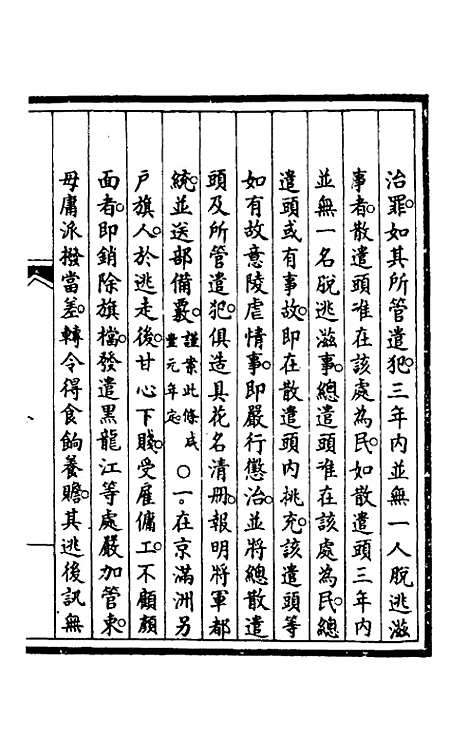 治罪。如其所管遣犯。三年內並無一人脫逃滋
事者。散遣頭准在該處為民。如散遣頭三年內
並無一名脫逃滋事。總遣頭准在該處為民。總
遣頭或有事故。即在散遣頭內挑充。該遣頭等
如有故意陵虐情事。即嚴行懲治。並將總散遣
頭及所管遣犯。俱造具花名清冊。報明將軍都
統。並送部備覈。謹案此條咸豐元年定○一。在京滿洲另
戶旗人。於逃走後。甘心下賤。受雇傭工。不顧顏
面者。即銷除旗檔。發遣黑龍江等處嚴加管束。
毋庸派撥當差。轉令得食餉養贍。其逃後訊無